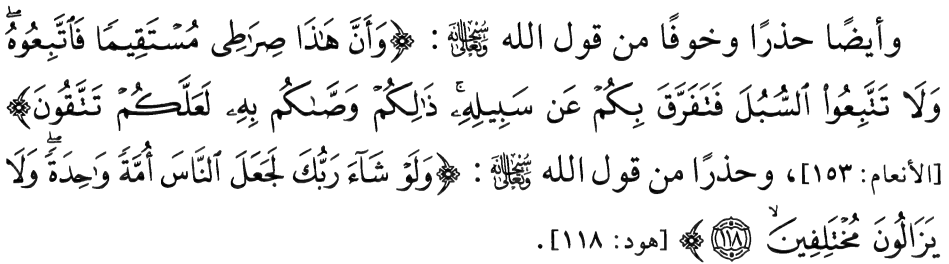 وأيضًا حذرًا وخوفًا من قول الله سُبْحَانَهُ وَتَعَالَىٰ: ﴿وَأَنَّ هَٰذَا صِرَٰطِى مُسْتَقِيمًا فَٱتَّبِعُوهُ ۖ
وَلَا تَتَّبِعُوا۟ ٱلسُّبُلَ فَتَفَرَّقَ بِكُمْ عَن سَبِيلِهِۦ ۚ ذَٰلِكُمْ وَصَّىٰكُم بِهِۦ لَعَلَّكُمْ تَتَّقُونَ﴾
[الأنعام: ١٥٣]، وحذرًا من قول الله سُبْحَانَهُ وَتَعَالَىٰ: ﴿وَلَوْ شَآءَ رَبُّكَ لَجَعَلَ ٱلنَّاسَ أُمَّةً وَٰحِدَةً ۖ وَلَا
يَزَالُونَ مُخْتَلِفِينَ ۙ ١١٨﴾ [هود: ١١٨].